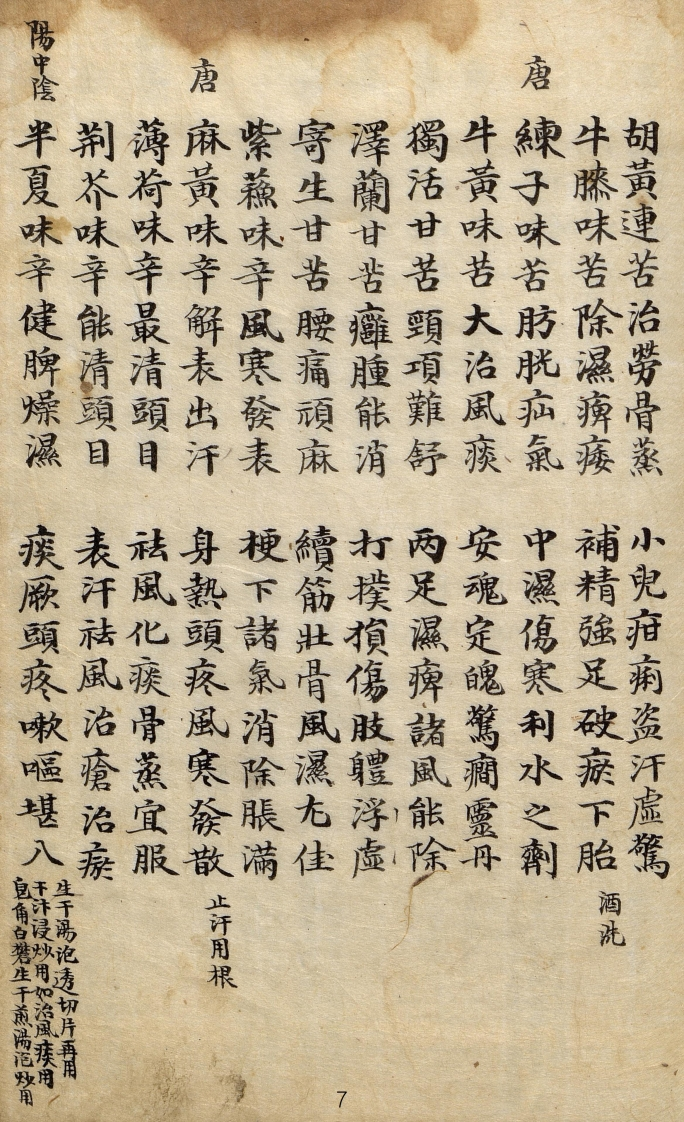 胡黃連苦治勞骨蒸 小兒疳痢盜汗虛驚
牛膝味苦除濕痺痿 補精強足破瘀下胎 酒洗
唐 練子味苦肪胱疝氣 中濕傷寒利水之劑
牛黃味苦大治風痰 安魂定魄驚癎靈丹
獨活甘苦頸項難舒 两足濕痺諸風能除
澤蘭甘苦癰腫能消 打撲損傷肢軆浮虛
寄生甘苦腰痛頑麻 續筋壯骨風濕尢佳
紫蘓味辛風寒發表 梗下諸氣消除脹滿
唐 麻黃味辛解表出汗 身熱頭疼風寒發散 止汗用根
薄荷味辛最清頭目 祛風化痰骨蒸宜服
荆芥味辛能清頭目 表汗祛風治瘡治瘀
陽中陰 半夏味辛健脾燥濕 痰厥頭疼嗽嘔堪入
生干湯泡透切片再用
干汁浸炒用如治風痰用
皂角白礬生干煎湯泡炒用
7